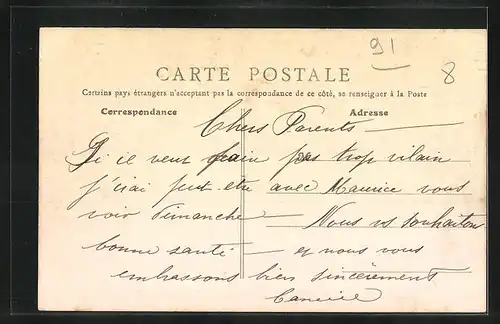 91
8
CARTE POSTALE
Certains pays étrangers n'acceptant pas la correspondance de ce côté, se renseigner à la Poste
Correspondance
Adresse
Chers Parents
Si il veut pas trop vilain
j'irai peut etre avec Maurice vous
voir Dimanche — Nous vs souhaitons
bonne santé — et nous vous
embrassons bien sincèrement